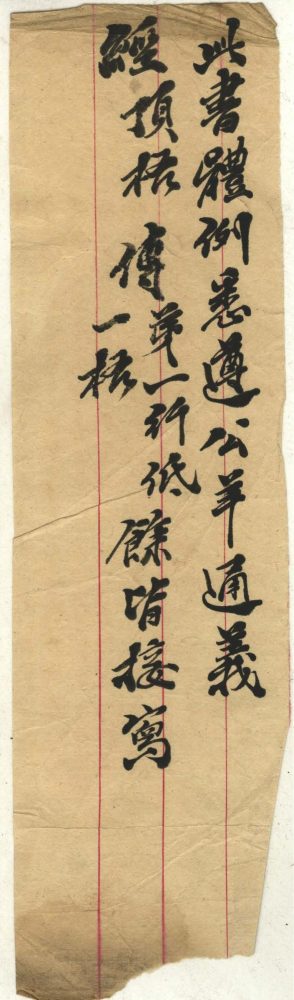 此書體例悉遵公羊通義
經頂格 傳第一行低
一格
餘皆接寫